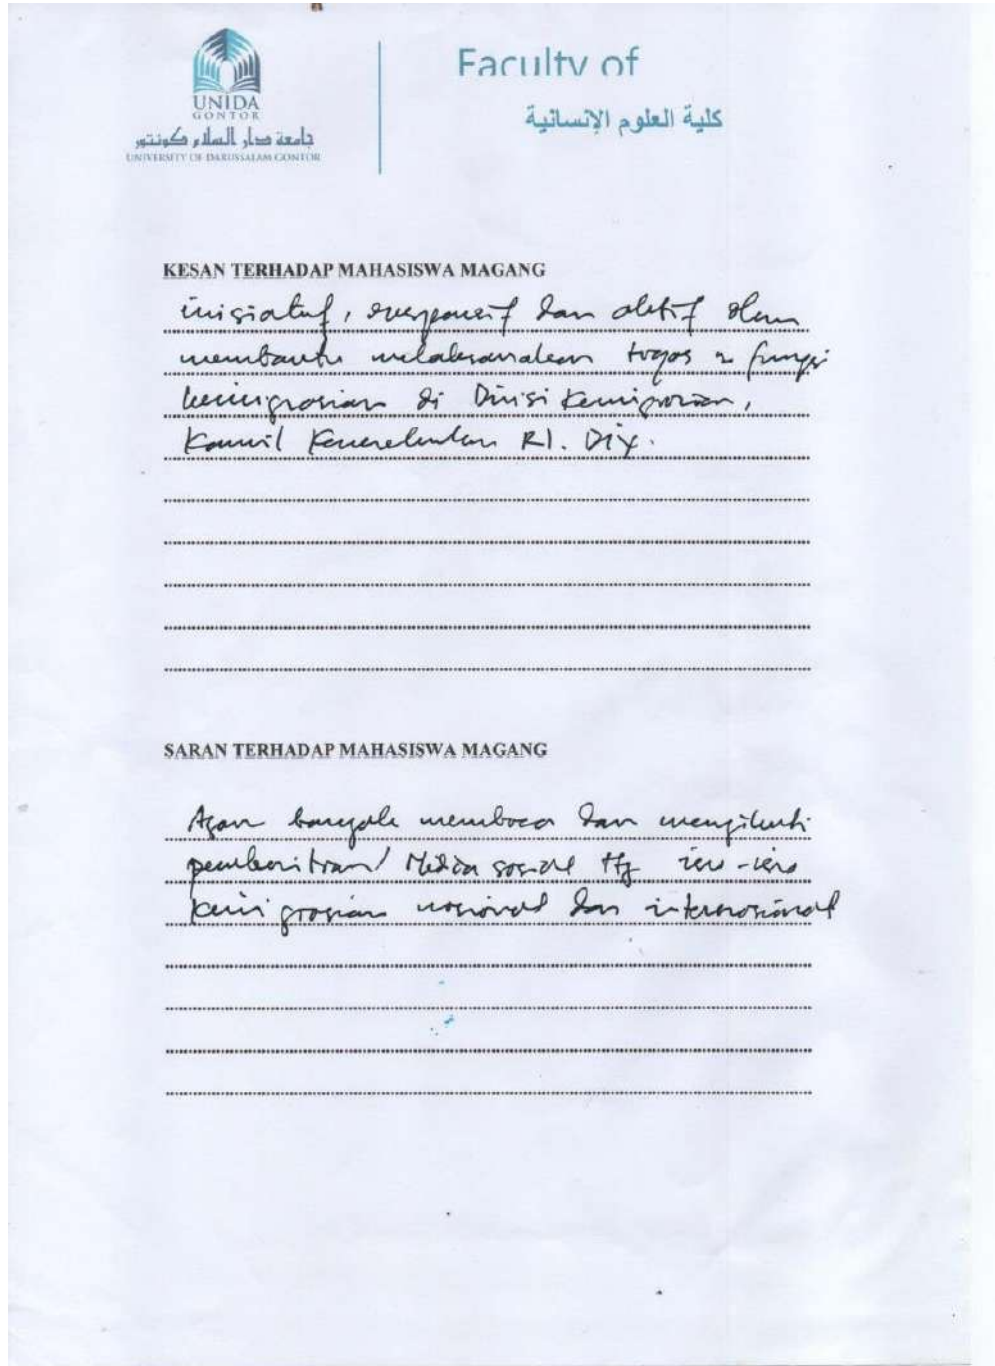 UNIDA
GONTOR
جامعة دار السلام كونتور
UNIVERSITY OF DARUSSALAM GONTOR
Faculty of
كلية العلوم الإنسانية
KESAN TERHADAP MAHASISWA MAGANG
inisiatif, responsif dan aktif dlm
membantu melaksanakan tugas 2 fungsi
keimigrasian di Divisi Keimigrasian,
Kanwil Kemenkumham RI. DIY.
SARAN TERHADAP MAHASISWA MAGANG
Agar banyak membaca dan mengikuti
pemberitaan/ Media sosial ttg isu-isu
Keimigrasian nasional dan internasional